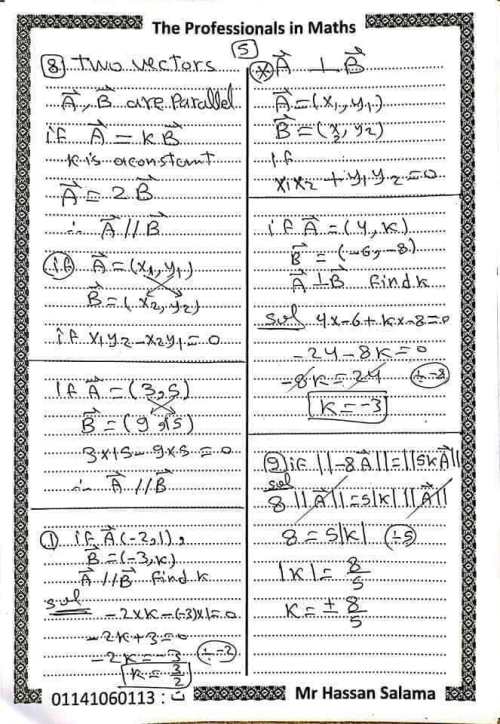 The Professionals in Maths
5
8 two vectors
A⃗, B⃗ are Parallel
if A⃗ = K B⃗
K is a constant
A⃗ = 2 B⃗
∴ A⃗ // B⃗
if A⃗ = (x1, y1)
B⃗ = (x2, y2)
if x1y2 - x2y1 = 0
If A⃗ = (3, 5)
B⃗ = (9, 15)
3 x 15 - 9 x 5 = 0
∴ A⃗ // B⃗
1 if A⃗ (-2, 1),
B⃗ = (-3, K)
A⃗ // B⃗ Find K
sol
-2 x K - (-3) x 1 = 0
-2K + 3 = 0
-2K = -3 ÷ -2
K = 3/2
* A⃗ ⊥ B⃗
A⃗ = (x1, y1)
B⃗ = (x2, y2)
If
x1x2 + y1y2 = 0
if A⃗ = (4, K)
B⃗ = (-6, -8)
A⃗ ⊥ B⃗ Find K
sol 4 x -6 + K x -8 = 0
-24 - 8K = 0
-8K = 24 ÷ -8
K = -3
9 if ||-8A⃗|| = ||5KA⃗||
sol
8 ||A⃗|| = 5|K| ||A⃗||
8 = 5|K| ÷5
|K| = 8/5
K = ± 8/5
01141060113 : ت
Mr Hassan Salama